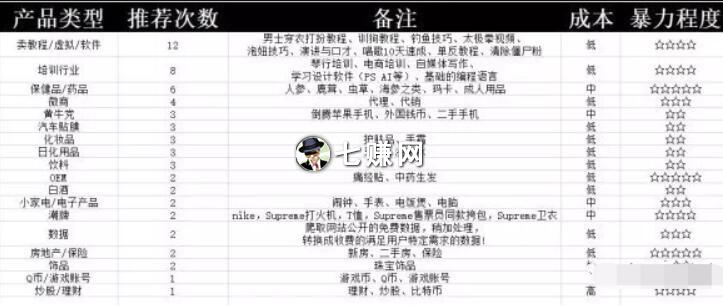 产品类型 推荐次数 备注 成本 暴力程度
卖教程/虚拟/软件 12 男士穿衣打扮教程、训狗教程、钓鱼技巧、太极拳视频、泡妞技巧、演讲与口才、唱歌10天速成、单反教程、清除僵尸粉 低 ☆☆☆☆
培训行业 8 琴行培训、电商培训、自媒体写作、学习设计软件（PS AI等）、基础的编程语言 低 ☆☆☆☆
保健品/药品 6 人参、鹿茸、虫草、海参之类、玛卡、成人用品 中 ☆☆☆☆☆
微商 4 代理、代销 低 ☆☆☆
黄牛党 3 倒腾苹果手机、外国钱币、二手手机 中 ☆☆
汽车贴膜 3 低 ☆☆
化妆品 3 护肤品、手霜 低 ☆☆☆
日化用品 3 低 ☆☆☆
饮料 3 低 ☆☆
OEM 2 痛经贴、中药生发 低 ☆☆☆☆☆
白酒 2 低 ☆☆
小家电/电子产品 2 闹钟、手表、电饭煲、电脑 中 ☆☆☆
潮牌 2 nike，Supreme打火机，T恤，Supreme售票员同款挎包，Supreme卫衣 中 ☆☆☆
数据 2 爬取网站公开的免费数据，稍加处理，转换成收费的满足用户特定需求的数据！ 低 ☆☆
房地产/保险 2 新房、二手房、保险 低 ☆☆☆☆☆
饰品 2 珠宝饰品 低 ☆☆
Q币/游戏账号 1 游戏币、Q币、游戏账号
炒股/理财 1 理财、炒股、比特币 高
七赚网